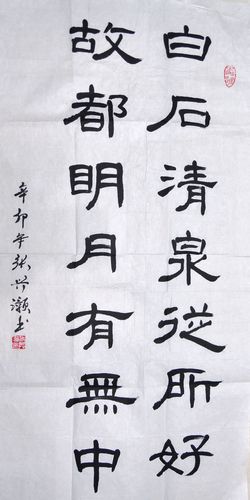 白石清泉從所好
故都明月有無中
辛卯年張兴灏书